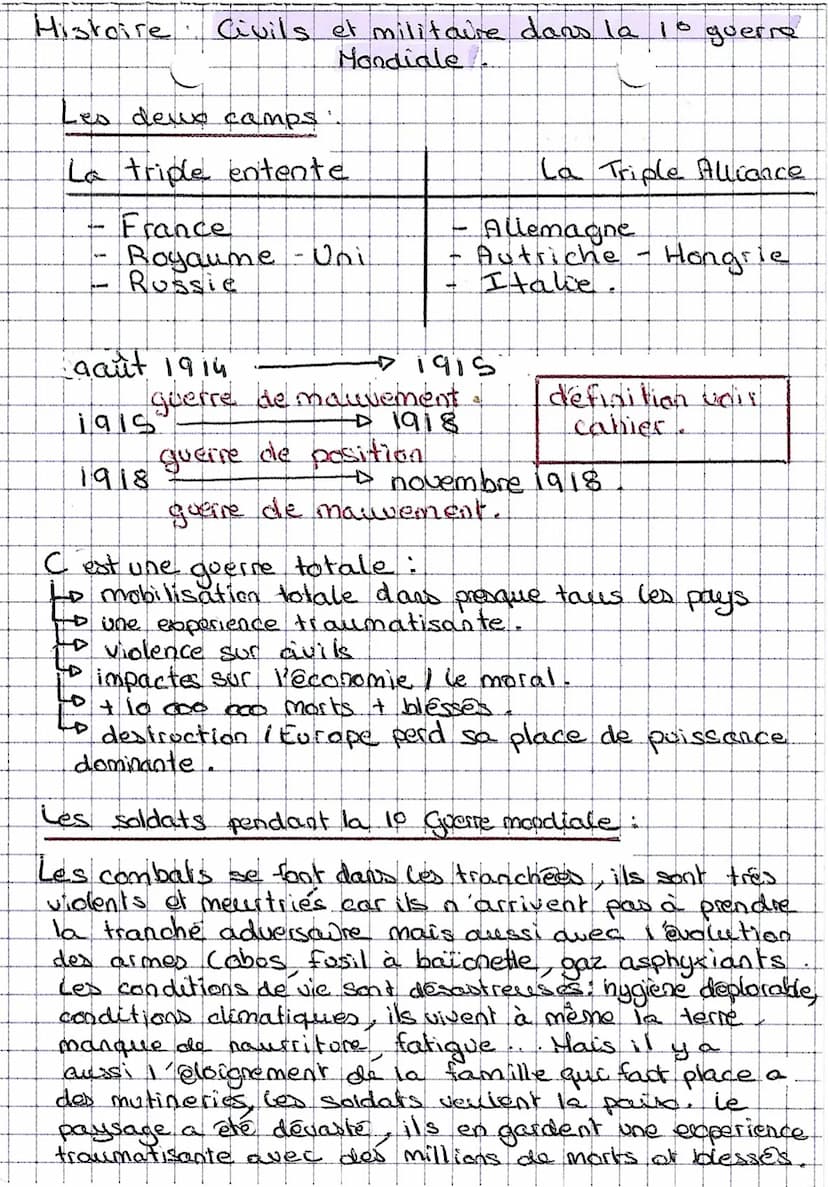 Histoire : Civils et militaire dans la 1° guerre
Mondiale.
Les deux camps :
La triple entente
La Triple Alliance
- France
- Royaume - Uni
- Russie
- Allemagne
- Autriche - Hongrie
- Italie.
août 1914 → 1915
guerre de mouvement.
1915 → 1918
guerre de position
1918 → novembre 1918.
guerre de mouvement.
définition voir
cahier.
C'est une guerre totale :
↳ mobilisation totale dans presque tous les pays
↳ une experience traumatisante.
↳ violence sur civils
↳ impactes sur l'économie / le moral.
↳ + 10 000 000 morts + blessés.
↳ destruction / Europe perd sa place de puissance
dominante.
Les soldats pendant la 1° Guerre mondiale :
Les combats se font dans les tranchées, ils sont très
violents et meurtriés car ils n'arrivent pas à prendre
la tranché adversaire mais aussi avec l'évolution
des armes (obus, fusil à baïonette, gaz asphyxiants.
Les conditions de vie sont désastreuses : hygiène déplorable,
conditions climatiques, ils vivent à même la terre,
manque de nourriture, fatigue... Mais il y a
aussi l'éloignement de la famille qui fact place a
des mutineries, les soldats veulent la paix. Le
paysage a été dévasté, ils en gardent une experience
traumatisante avec des millions de morts et blessés.